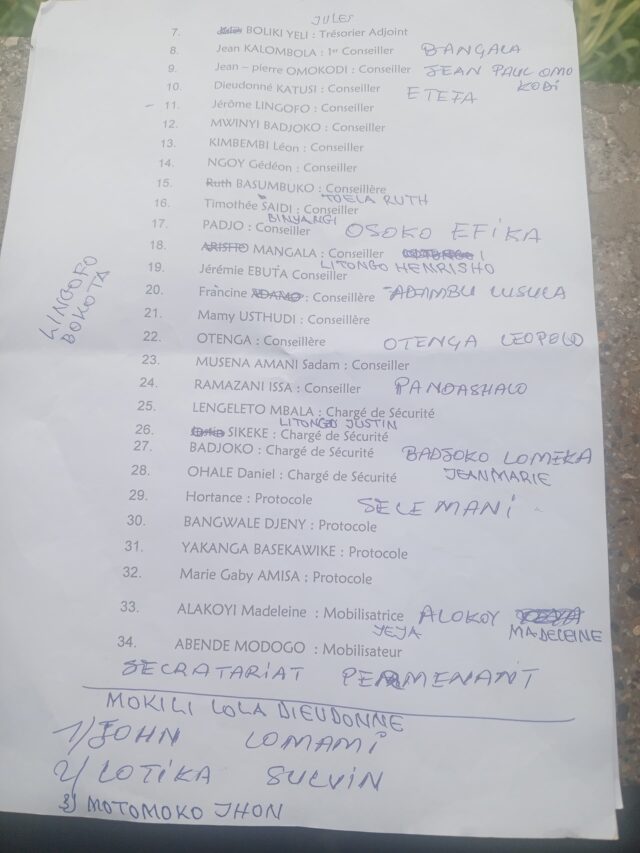 JULES
7. BOLIKI YELI : Trésorier Adjoint
8. Jean KALOMBOLA : 1er Conseiller BANGALA
9. Jean – pierre OMOKODI : Conseiller JEAN PAUL OMO
KODI
10. Dieudonné KATUSI : Conseiller ETEFA
– 11. Jérôme LINGOFO : Conseiller
12. MWINYI BADJOKO : Conseiller
13. KIMBEMBI Léon : Conseiller
14. NGOY Gédéon : Conseiller
15. Ruth BASUMBUKO : Conseillère
TOELA RUTH
16. Timothée SAIDI : Conseiller
BINYANGI
17. PADJO : Conseiller OSOKO EFIKA
18. ARISHO MANGALA : Conseiller
LITONGO HENRISHO
19. Jérémie EBUTA Conseiller
20. Francine ADAMO : Conseillère ADAMBU LUSULA
LINGOFO
BOKOTA
21. Mamy USTHUDI : Conseillère
22. OTENGA : Conseillère OTENGA LEOPOLD
23. MUSENA AMANI Sadam : Conseiller
24. RAMAZANI ISSA : Conseiller PANDASHALO
25. LENGELETO MBALA : Chargé de Sécurité
LITONGO JUSTIN
26. SIKEKE : Chargé de Sécurité
27. BADJOKO : Chargé de Sécurité BADJOKO LOMEKA
JEAN MARIE
28. OHALE Daniel : Chargé de Sécurité
29. Hortance : Protocole SELEMANI
30. BANGWALE DJENY : Protocole
31. YAKANGA BASEKAWIKE : Protocole
32. Marie Gaby AMISA : Protocole
33. ALAKOYI Madeleine : Mobilisatrice ALOKOY
MADELEINE
YEYA
34. ABENDE MODOGO : Mobilisateur
SECRATARIAT PERMENANT
MOKILI LOLA DIEUDONNE
1/ JOHN LOMAMI
2/ LOTIKA SULVIN
3) MOTOMOKO JHON